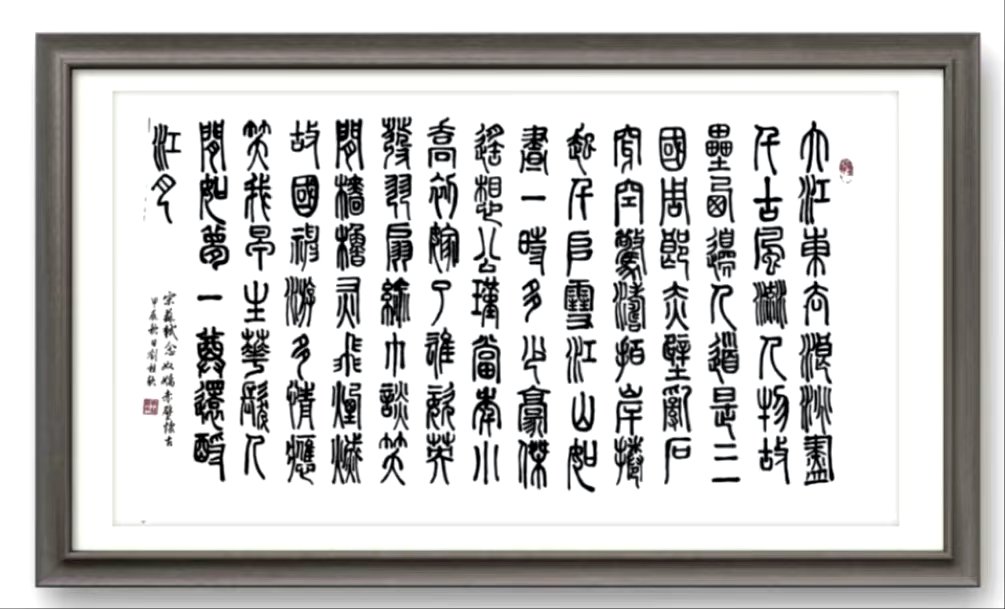 大江東去浪淘盡
千古風流人物故
壘西邊人道是三
國周郎赤壁亂石
穿空驚濤拍岸捲
起千𠂤雪江山如
畫一時多少豪傑
遙想公瑾當年小
喬初嫁了雄姿英
發羽扇綸巾談笑
間檣櫓灰飛煙滅
故國神游多情應
笑我早生華髮人
間如夢一尊還酹
江月
宋蘇軾念奴嬌赤壁懷古
甲辰秋日劉